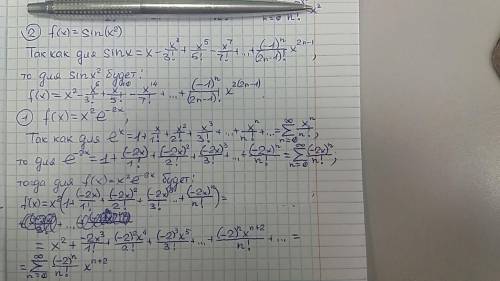 n=0 n! x²
② f(x) = sin(x²)
Так как для sinx = x - x³/3! + x⁵/5! - x⁷/7! + ... + (-1)ⁿ/(2n-1)! x²ⁿ⁻¹,
то для sinx² будет:
f(x) = x² - x⁶/3! + x¹⁰/5! - x¹⁴/7! + ... + (-1)ⁿ/(2n-1)! x²⁽²ⁿ⁻¹⁾.
① f(x) = x²e⁻²ˣ,
Так как для eˣ = 1 + x/1! + x²/2! + x³/3! + ... + xⁿ/n! + ... = ∞ Σ n=0 xⁿ/n!,
то для e⁻²ˣ = 1 + (-2x)/1! + (-2x)²/2! + (-2x)³/3! + ... + (-2x)ⁿ/n! = ∞ Σ n=0 (-2x)ⁿ/n!,
тогда для f(x) = x²e⁻²ˣ будет:
f(x) = x²(1 + (-2x)/1! + (-2x)²/2! + (-2x)³/3! ... + (-2x)ⁿ/n!) =
= x² + -2x³/1! + (-2)²x⁴/2! + (-2)³x⁵/3! + ... + (-2)ⁿxⁿ⁺²/n! + ... =
= ∞ Σ n=0 (-2)ⁿ/n! xⁿ⁺².